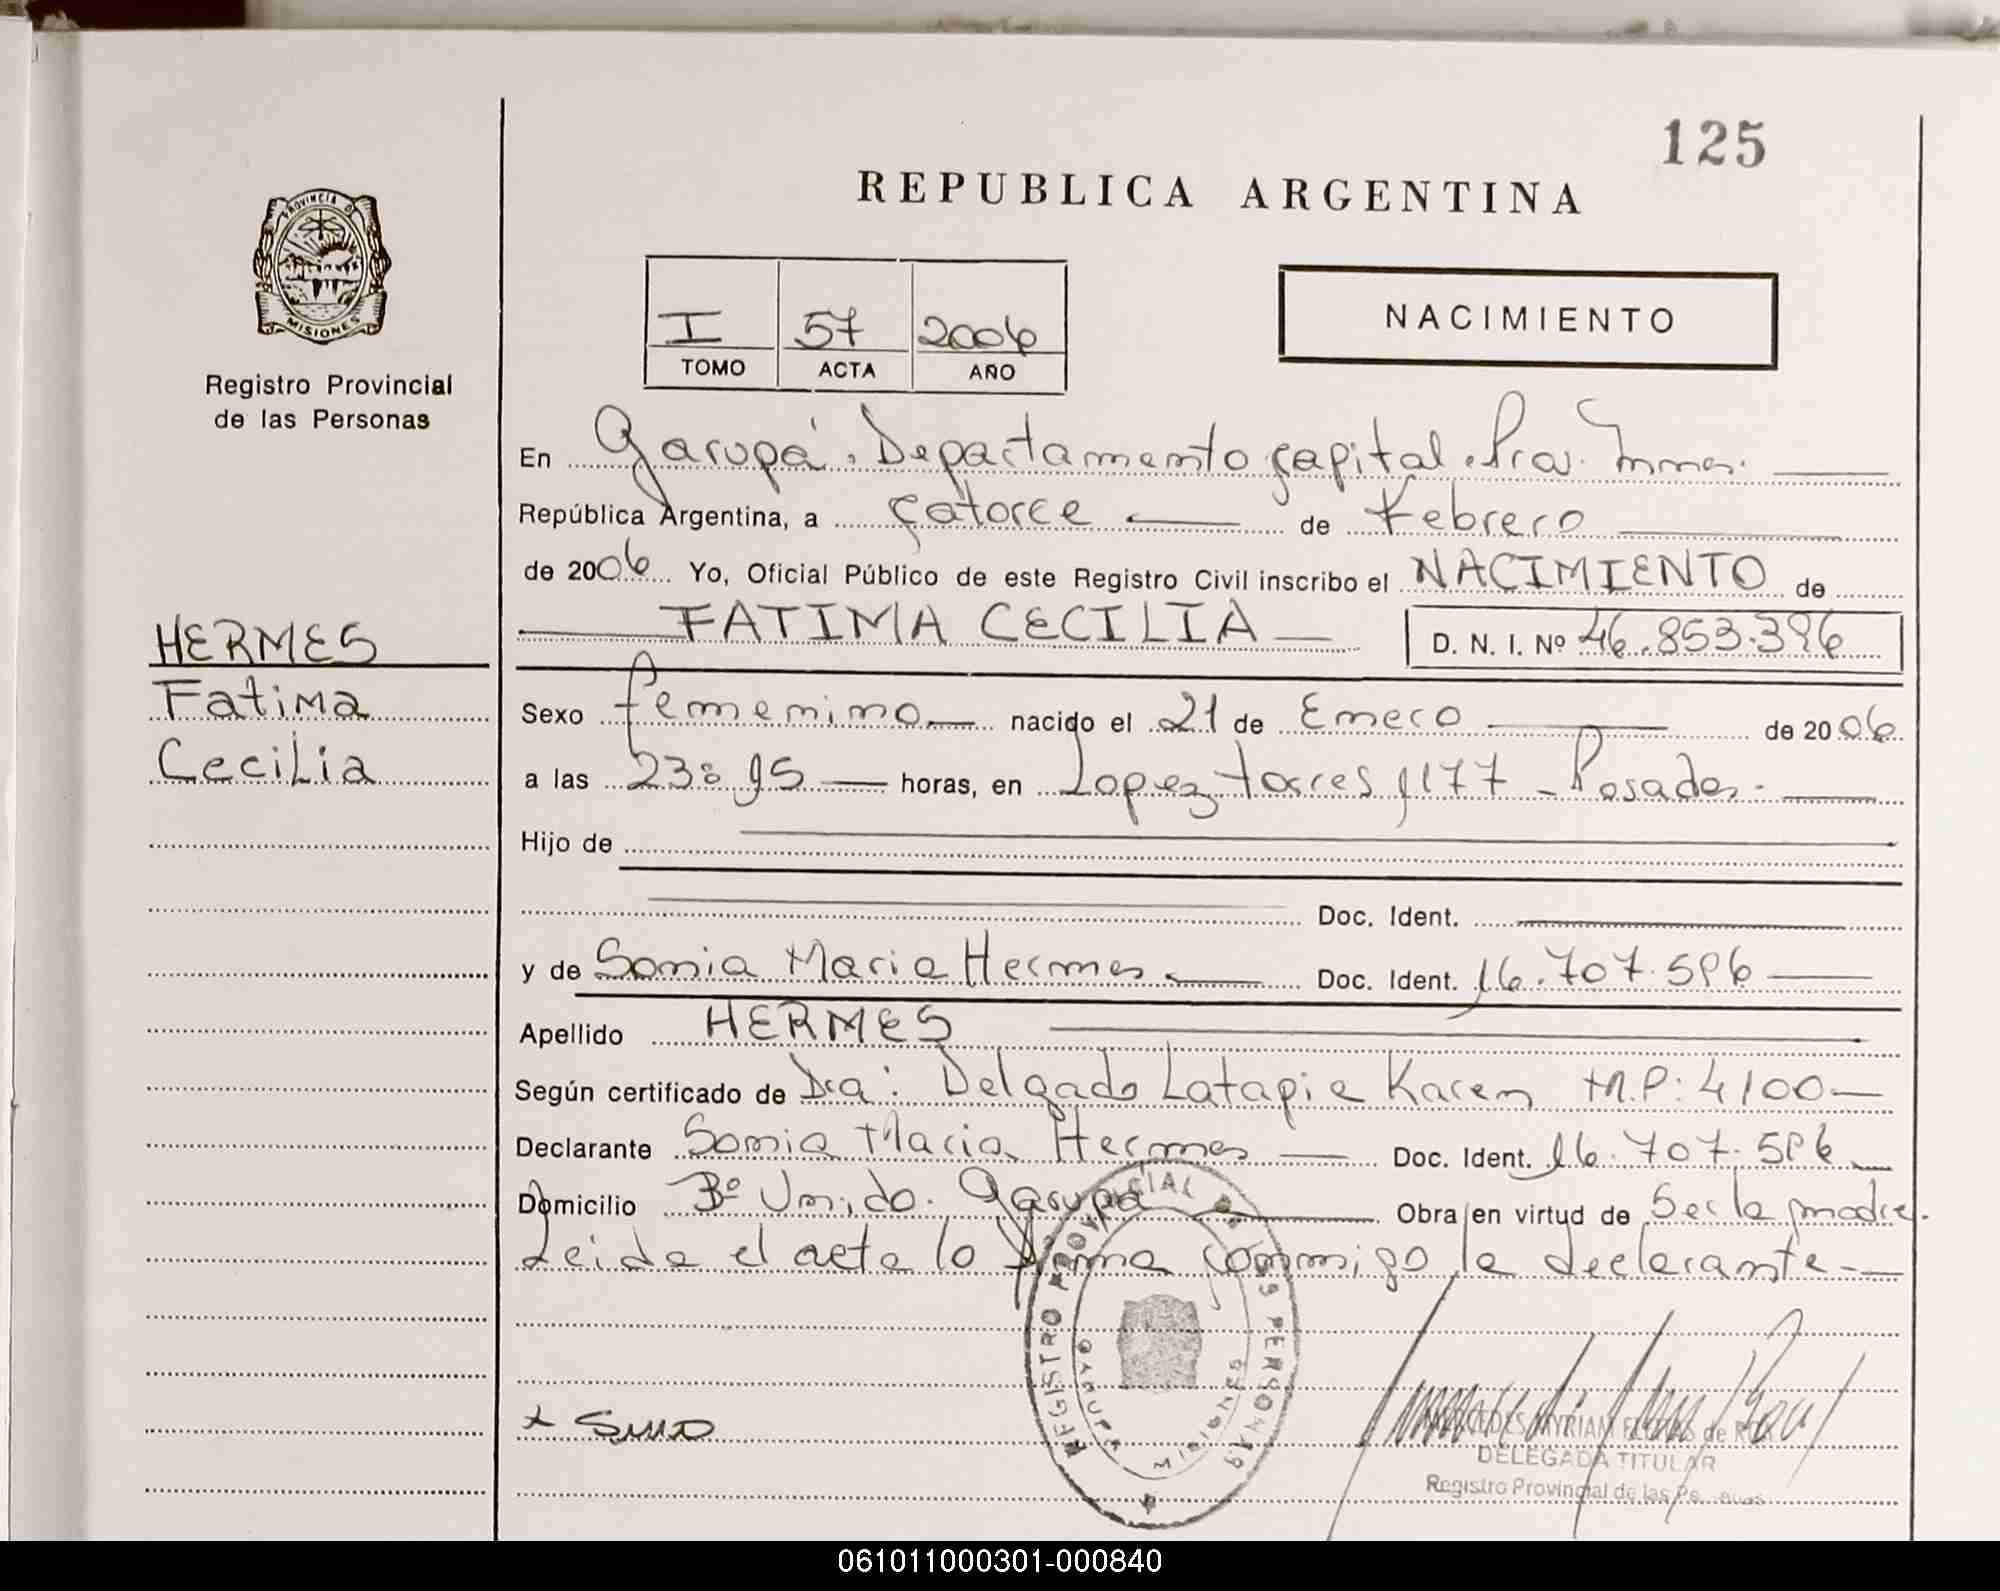 125
REPUBLICA ARGENTINA
PROVINCIA DE
MISIONES
Registro Provincial
de las Personas
I 57 2006
TOMO ACTA AÑO
NACIMIENTO
En Garupá, Departamento Capital, Prov. Mnes.
República Argentina, a catorce de Febrero
de 2006 Yo, Oficial Público de este Registro Civil inscribo el NACIMIENTO de
FATIMA CECILIA D. N. I. Nº 46.853.396
HERMES
Fatima
Cecilia
Sexo femenino nacido el 21 de Enero de 2006
a las 23:45 horas, en Lopez torres 1177 - Posadas.
Hijo de
Doc. Ident.
y de Sonia Maria Hermes Doc. Ident. 16.707.596
Apellido HERMES
Según certificado de Dra: Delgado Latapie Karen M.P: 4100
Declarante Sonia Maria Hermes Doc. Ident. 16.707.596
Domicilio Bº Unido. Garupá Obra en virtud de Ser la madre.
Leida el acta lo firma conmigo la declarante
REGISTRO PROVINCIAL DE LAS PERSONAS
GARUPA MISIONES
MERCEDES MYRIAM de
DELEGADA TITULAR
Registro Provincial de las
061011000301-000840